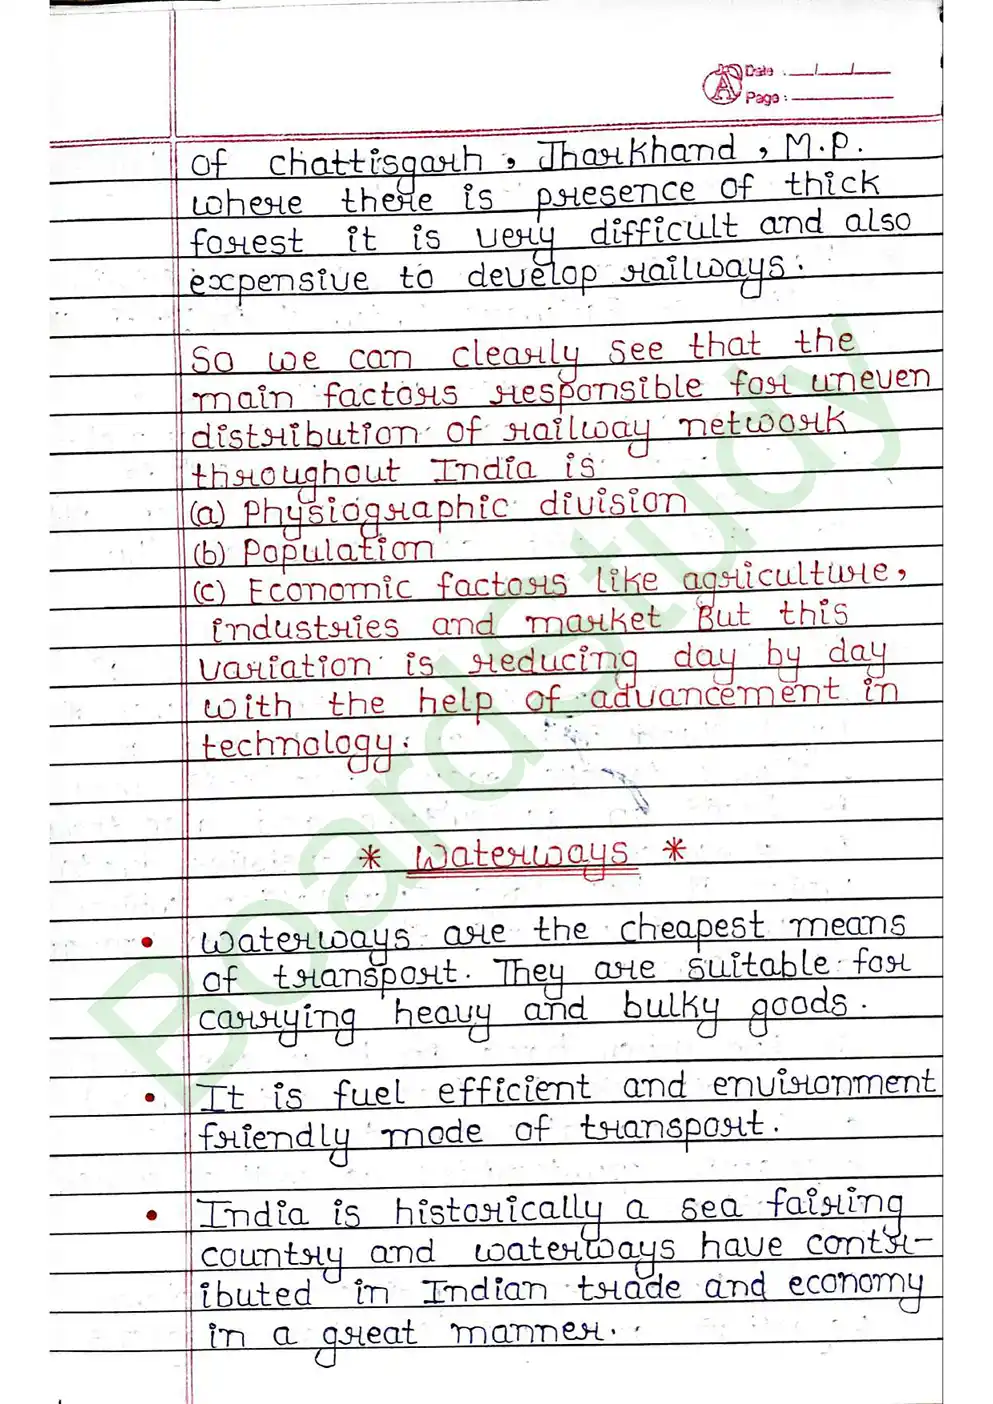 Date : __/__/__
Page : ________
of chattisgarh, Jharkhand, M.P.
where there is presence of thick
forest it is very difficult and also
expensive to develop railways.
So we can clearly see that the
main factors responsible for uneven
distribution of railway network
throughout India is
(a) Physiographic division
(b) Population
(c) Economic factors like agriculture,
industries and market But this
variation is reducing day by day
with the help of advancement in
technology.
* Waterways *
• Waterways are the cheapest means
of transport. They are suitable for
carrying heavy and bulky goods.
• It is fuel efficient and environment
friendly mode of transport.
• India is historically a sea fairing
country and waterways have contr-
ibuted in Indian trade and economy
in a great manner.
Boardstudy